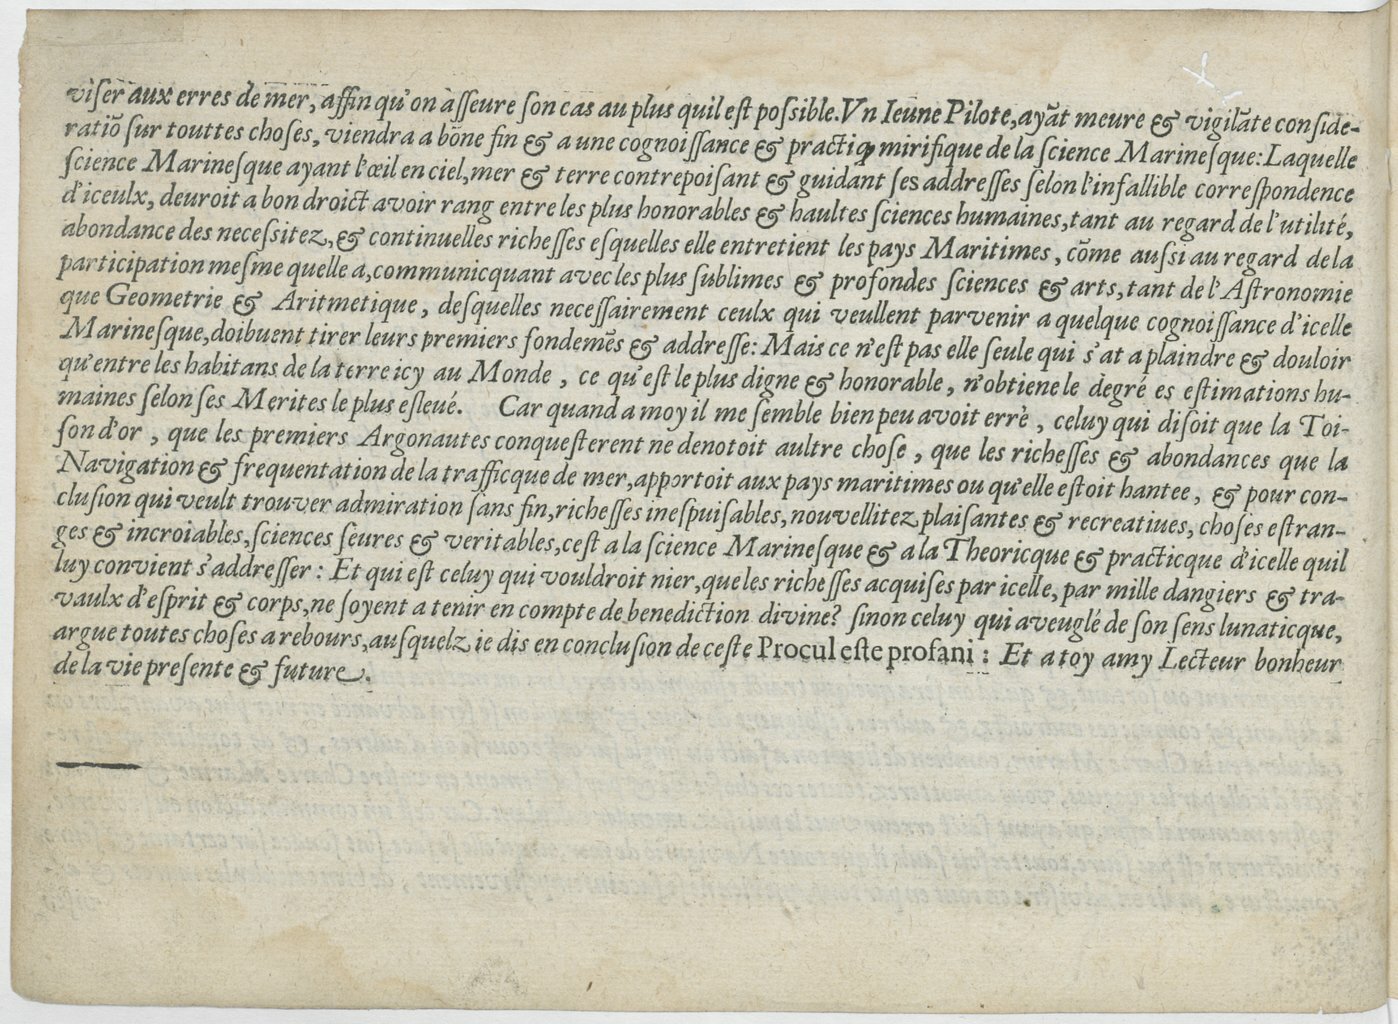 viſer aux erres de mer, affin qu'on aſſeure ſon cas au plus quil eſt poſsible. Vn Ieune Pilote, ayāt meure & vigilāte conſide-
ratiō ſur touttes choſes, viendra a bōne fin & a une cognoiſſance & practiq mirifique de la ſcience Marineſque: Laquelle
ſcience Marineſque ayant l'œil en ciel, mer & terre contrepoiſant & guidant ſes addreſſes ſelon l'infallible correſpondence
d'iceulx, deuroit a bon droict avoir rang entre les plus honorables & haultes ſciences humaines, tant au regard de l'utilité,
abondance des neceſsitez, & continuelles richeſſes eſquelles elle entretient les pays Maritimes, cōme auſsi au regard de la
participation meſme quelle a, communicquant avec les plus ſublimes & profondes ſciences & arts, tant de l'Aſtronomie
que Geometrie & Aritmetique, deſquelles neceſſairement ceulx qui veullent parvenir a quelque cognoiſſance d'icelle
Marineſque, doibuent tirer leurs premiers fondemēs & addreſſe: Mais ce n'eſt pas elle ſeule qui s'at a plaindre & douloir
qu'entre les habitans de la terre icy au Monde, ce qu'eſt le plus digne & honorable, n'obtiene le dègré es eſtimations hu-
maines ſelon ſes Merites le plus eſleué. Car quand a moy il me ſemble bien peu avoit errè, celuy qui diſoit que la Toi-
ſon d'or, que les premiers Argonautes conqueſterent ne denotoit aultre choſe, que les richeſſes & abondances que la
Navigation & frequentation de la trafficque de mer, apportoit aux pays maritimes ou qu'elle eſtoit hantee, & pour con-
cluſion qui veult trouver admiration ſans fin, richeſſes ineſpuiſables, nouvellitez plaiſantes & recreatiues, choſes eſtran-
ges & incroiables, ſciences ſeures & veritables, ceſt a la ſcience Marineſque & a la Theoricque & practicque d'icelle quil
luy convient s'addreſſer: Et qui eſt celuy qui vouldroit nier, que les richeſſes acquiſes par icelle, par mille dangiers & tra-
vaulx d'eſprit & corps, ne ſoyent a tenir en compte de benediction divine? ſinon celuy qui aveuglé de ſon ſens lunaticque,
argue toutes choſes a rebours, auſquelz ie dis en concluſion de ceſte Procul eſte profani: Et a toy amy Lecteur bonheur
de la vie preſente & future.